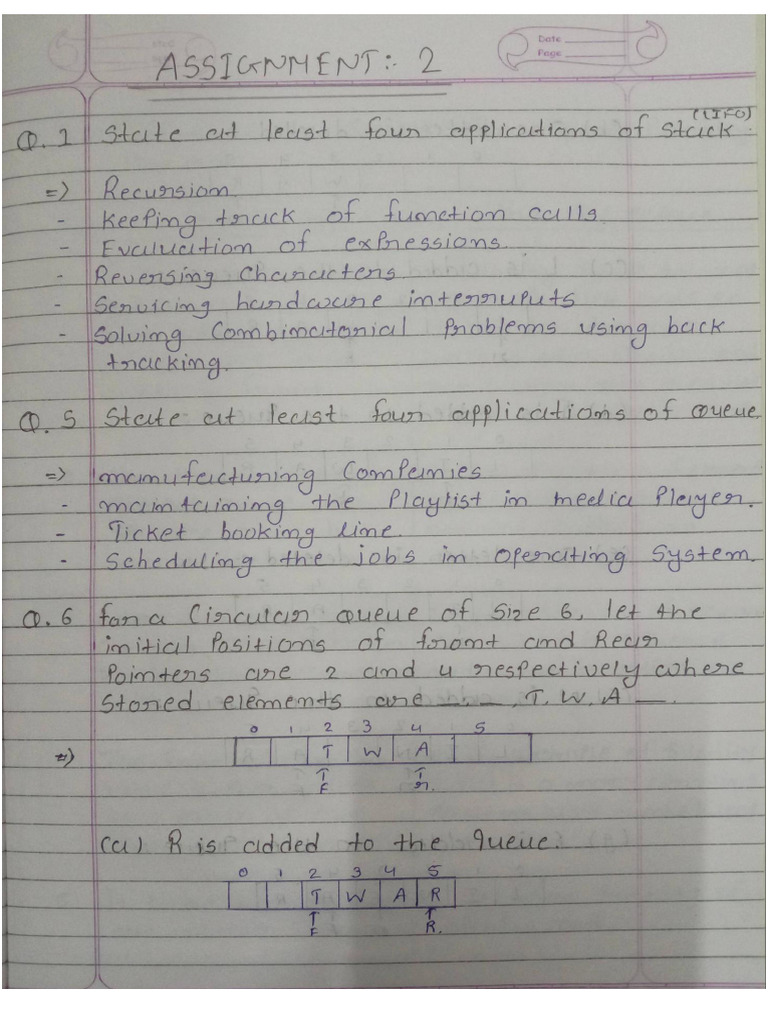 Date
Page
ASSIGNMENT:- 2
(LIFO)
Q.1 State at least four applications of stack.
=) Recursion.
- Keeping track of function calls.
- Evaluation of expressions.
- Reversing characters
- Servicing hardware interruputs
- Solving Combinatorial Problems using back
tracking.
Q.5 State at least four applications of Queue
=) manufacturing Companies
- maintaining the Playlist in media Player.
- Ticket booking line.
- Scheduling the jobs in operating System.
Q.6 for a Circular Queue of Size 6, let the
initial Positions of front and Rear
Pointers are 2 and 4 respectively where
Stored elements are __, __, T, W, A __.
0 1 2 3 4 5
=) T W A
F r.
(a) R is added to the queue.
0 1 2 3 4 5
T W A R
F R.